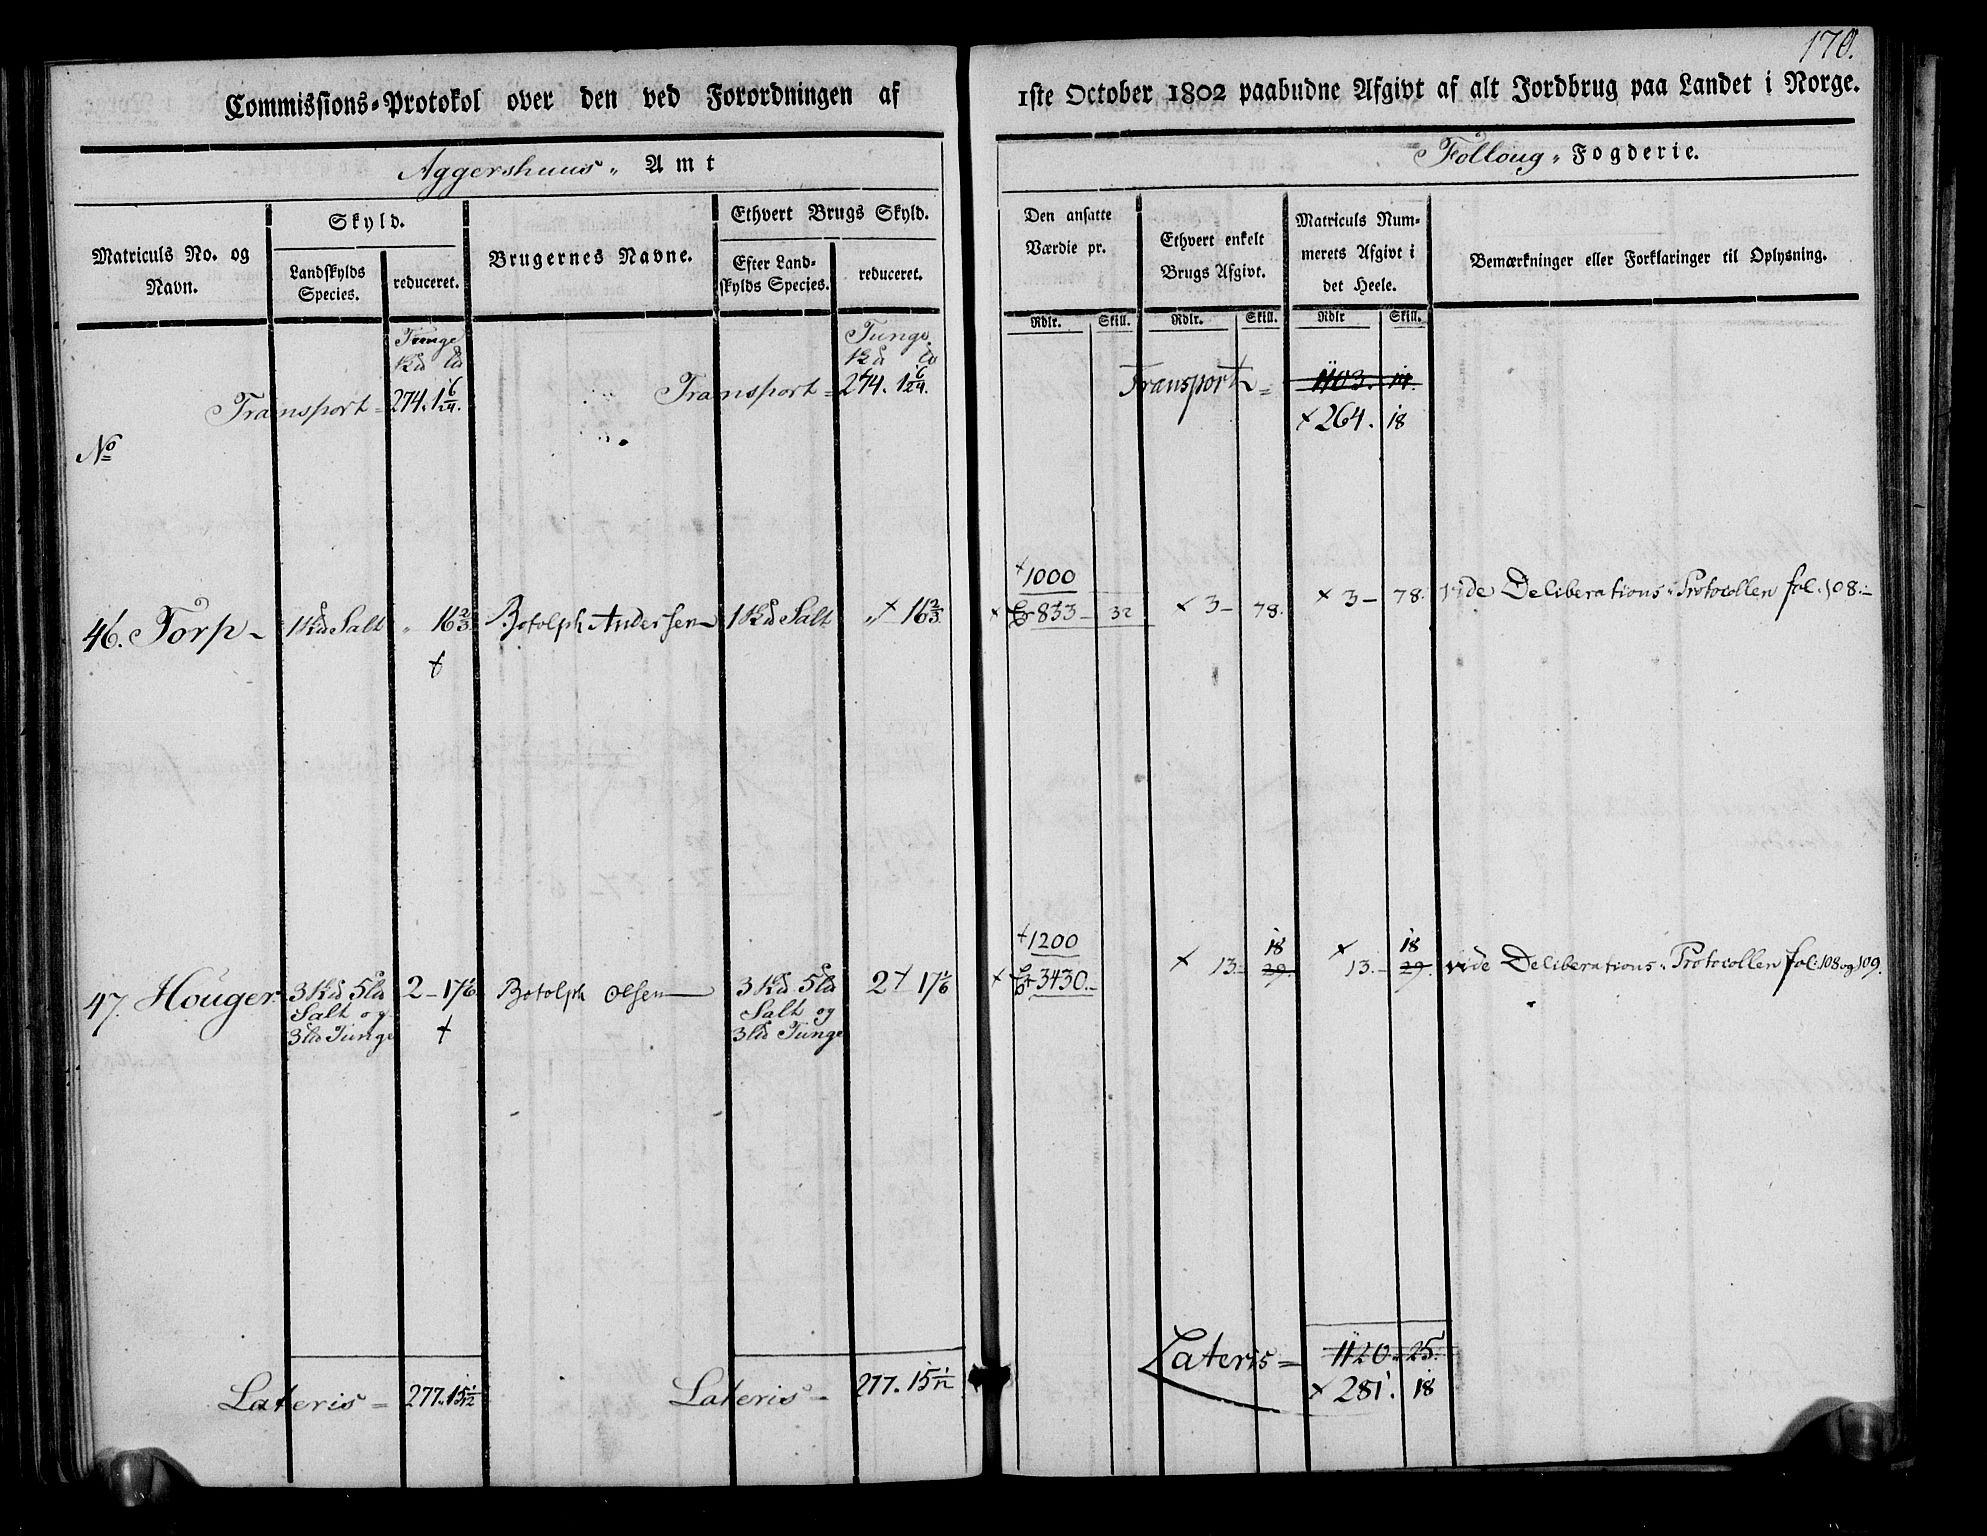 170.
Commissions-Protokol over den ved Forordningen af 1ste October 1802 paabudne Afgivt af alt Jordbrug paa Landet i Norge.
Aggershuus„ Amt
Folloug„ Fogderie.
Matriculs No. og Navn.
Skyld.
Landskylds Species.
reduceret.
Brugernes Navne.
Ethvert Brugs Skyld.
Efter Landskylds Species.
reduceret.
Den ansatte Værdie pr.
Ethvert enkelt Brugs Afgivt.
Matriculs Nummerets Afgivt i det Heele.
Bemærkninger eller Forklaringer til Oplysning.
Rdlr. Skill. Rdlr. Skill. Rdlr Skill.
Tunge Tunge
Transport = 274. 1 6/24. Transport = 274. 1 6/24. Transport = 1103. 14
× 264. 18
No
× 1000
46. Torp - 1 Salt „ 16 2/3 Botolph Andersen 1 Salt „ × 16 2/3 × 833 - 32 × 3 - 78. × 3 - 78. vide Deliberations-Protocollen fol. 108.-
+ 1200 18 18
47. Houger 3 5 2 - 17 1/6 Botolph Olsen 3 5 2 + 17 1/6 × 3430.- × 13.- 29. × 13.- 29. vide Deliberations-Protocollen fol. 108 og 109.
Salt og Salt og
3 Tunge 3 Tunge
Lateris = 277. 15 1/12 Lateris - 277. 15 1/12 Lateris = 1120. 25.
× 281. 18